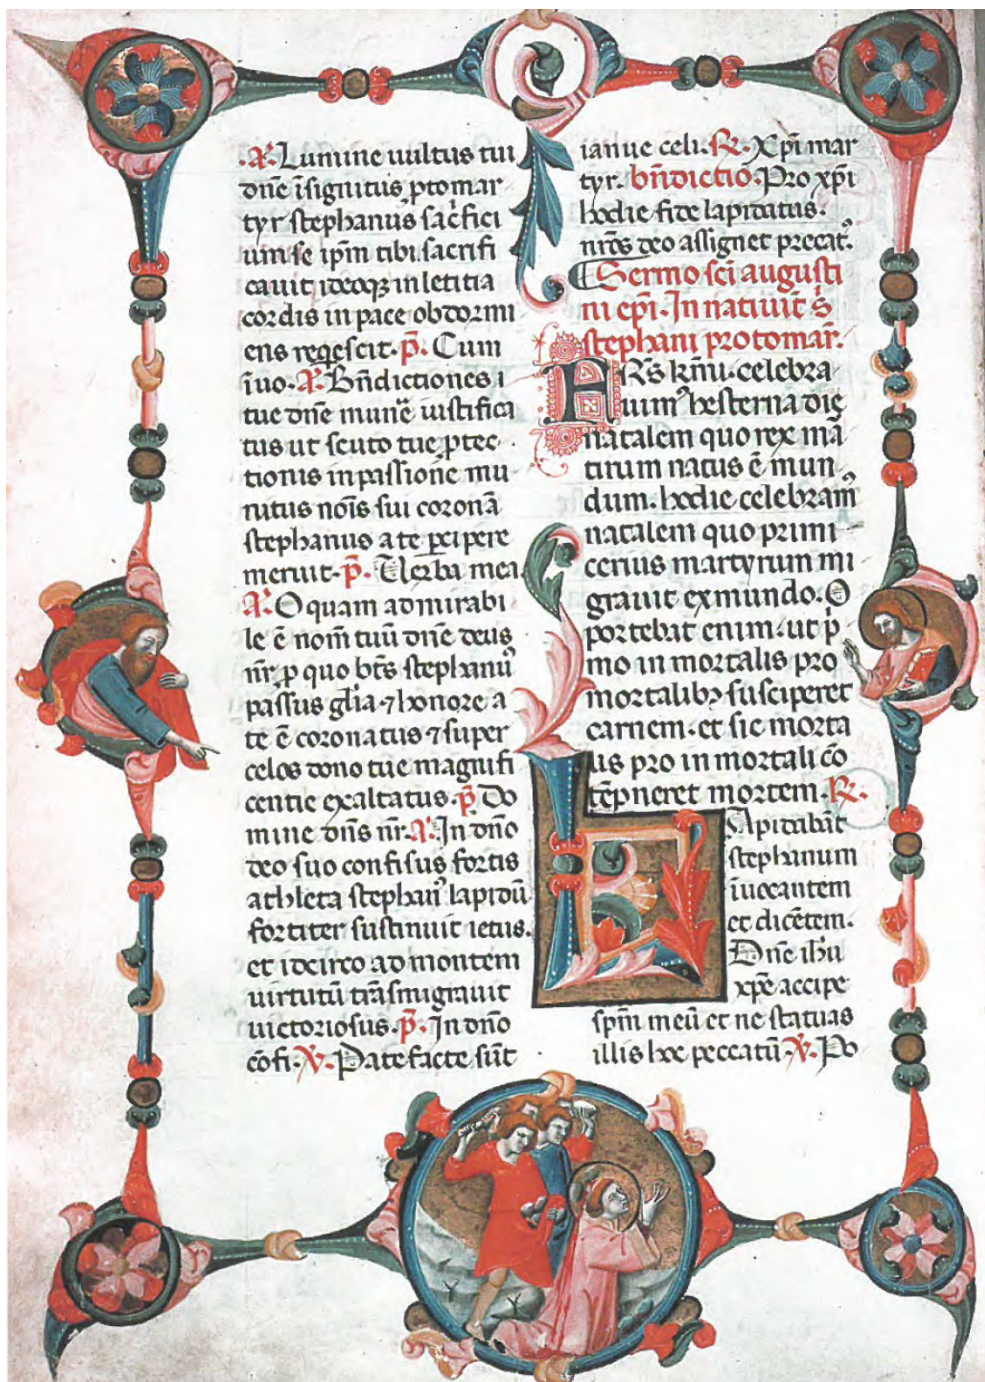 .A. Lumine uultus tui
dn̄e īsignitus ꝓtomar
tyr stephanus sac̄rfici
um se ip̄m tibi sacrifi
cauit ideoqꝫ in letitia
cordis in pace obdormi
ens reqescit. p̄. Cum
īuo. A. Bn̄dictiones i
tue dn̄e mun̄e iustifica
tus ut scuto tue ꝓtec
tionis in passione mu
nitus nōis sui coronā
stephanus a te peipere
meruit. p̄. Uerba mea
A. O quam admirabi
le ē nom̄ tuū dn̄e deus
nr̄, ꝓ quo bt̄s stephanꝰ
passus gl̄ia ⁊ honore a
te ē coronatus ⁊ super
celos dono tue magnifi
centie exaltatus. p̄ Do
mine dn̄s nr̄. A. In dn̄o
deo suo confisus fortis
athleta stephanꝰ lapidū
fortiter sustinuit ictus.
et idcirco ad montem
uirtutū trāsmigrauit
uictoriosus. p̄. In dn̄o
cōfi. V. Patefacte sūt
ianue celi. R. Xp̄i mar
tyr. bn̄dictiō. Pro xp̄i
hodie fide lapidatus.
nr̄os deo assignet precatꝰ.
Sermo sc̄i augusti
ni ep̄i. In natiuit̄ s̄
stephani protomar̄.
FRs̄ km̄i. celebra
uimꝰ hesterna die
natalem quo rex mar̄
tirum natus ē mun
dum. hodie celebramꝰ
natalem quo primi
cerius martyrum mi
grauit ex mundo. O
portebat enim. ut p̄
mo in mortalis pro
mortalibꝫ susciperet
carnem. et sic morta
lis pro in mortali cō
tēpneret mortem. R.
LApidabāt
stephanum
īuocantem
et dicētem.
Dn̄e ih̄u
xp̄e accipe
sp̄m meū et ne statuas
illis hoc peccatū. V. Po